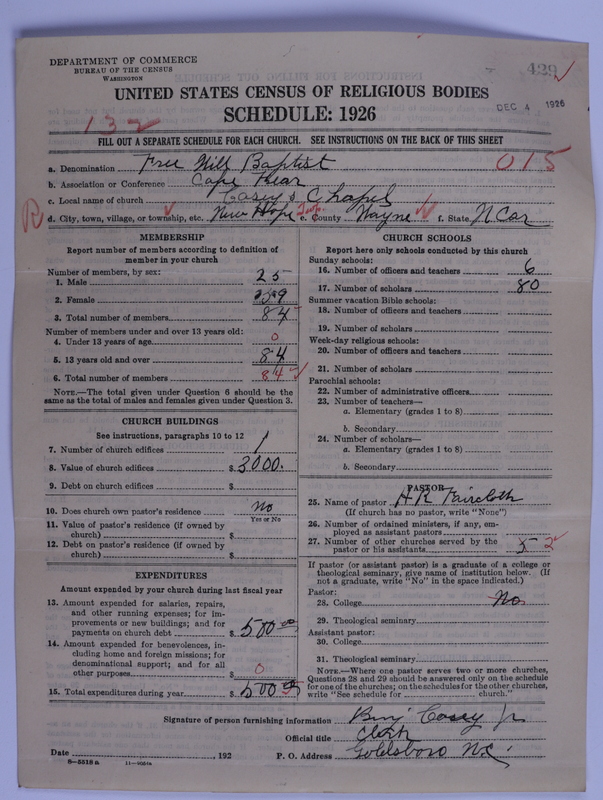 DEPARTMENT OF COMMERCE
BUREAU OF THE CENSUS
WASHINGTON
429
UNITED STATES CENSUS OF RELIGIOUS BODIES
SCHEDULE: 1926
DEC 4 1926
132
FILL OUT A SEPARATE SCHEDULE FOR EACH CHURCH. SEE INSTRUCTIONS ON THE BACK OF THIS SHEET
a. Denomination Free Will Baptist 015
b. Association or Conference Cape Fear
c. Local name of church Casey's Chapel
R d. City, town, village, or township, etc. New Hope Twp. e. County Wayne f. State N Car
MEMBERSHIP
Report number of members according to definition of
member in your church
Number of members, by sex:
1. Male 25
2. Female 59
3. Total number of members 84
Number of members under and over 13 years old:
4. Under 13 years of age 0
5. 13 years old and over 84
6. Total number of members 84
NOTE.—The total given under Question 6 should be
same as the total of males and females given under Question 3.
CHURCH BUILDINGS
See instructions, paragraphs 10 to 12
7. Number of church edifices 1
8. Value of church edifices $ 3000.
9. Debt on church edifices $
10. Does church own pastor's residence No
Yes or No
11. Value of pastor's residence (if owned by
church) $
12. Debt on pastor's residence (if owned by
church) $
EXPENDITURES
Amount expended by your church during last fiscal year
13. Amount expended for salaries, repairs,
and other running expenses; for im-
provements or new buildings; and for
payments on church debt $ 500 00
14. Amount expended for benevolences, in-
cluding home and foreign missions; for
denominational support; and for all
other purposes $ 0
15. Total expenditures during year $ 500
CHURCH SCHOOLS
Report here only schools conducted by this church
Sunday schools:
16. Number of officers and teachers 6
17. Number of scholars 80
Summer vacation Bible schools:
18. Number of officers and teachers
19. Number of scholars
Week-day religious schools:
20. Number of officers and teachers
21. Number of scholars
Parochial schools:
22. Number of administrative officers
23. Number of teachers—
a. Elementary (grades 1 to 8)
b. Secondary
24. Number of scholars—
a. Elementary (grades 1 to 8)
b. Secondary
PASTOR
25. Name of pastor H R Faircloth
(If church has no pastor, write "None")
26. Number of ordained ministers, if any, em-
ployed as assistant pastors
27. Number of other churches served by the
pastor or his assistants 2
If pastor (or assistant pastor) is a graduate of a college or
theological seminary, give name of institution below. (If
not a graduate, write "No" in the space indicated.)
Pastor:
28. College No
29. Theological seminary
Assistant pastor:
30. College
31. Theological seminary
NOTE.—Where one pastor serves two or more churches,
Questions 28 and 29 should be answered only on the schedule
for one of the churches; on the schedules for the other churches,
write "See schedule for church."
Signature of person furnishing information Benj Casey Jr
Official title Clerk
Date , 192 P. O. Address Goldsboro N.C.
8—5518 a